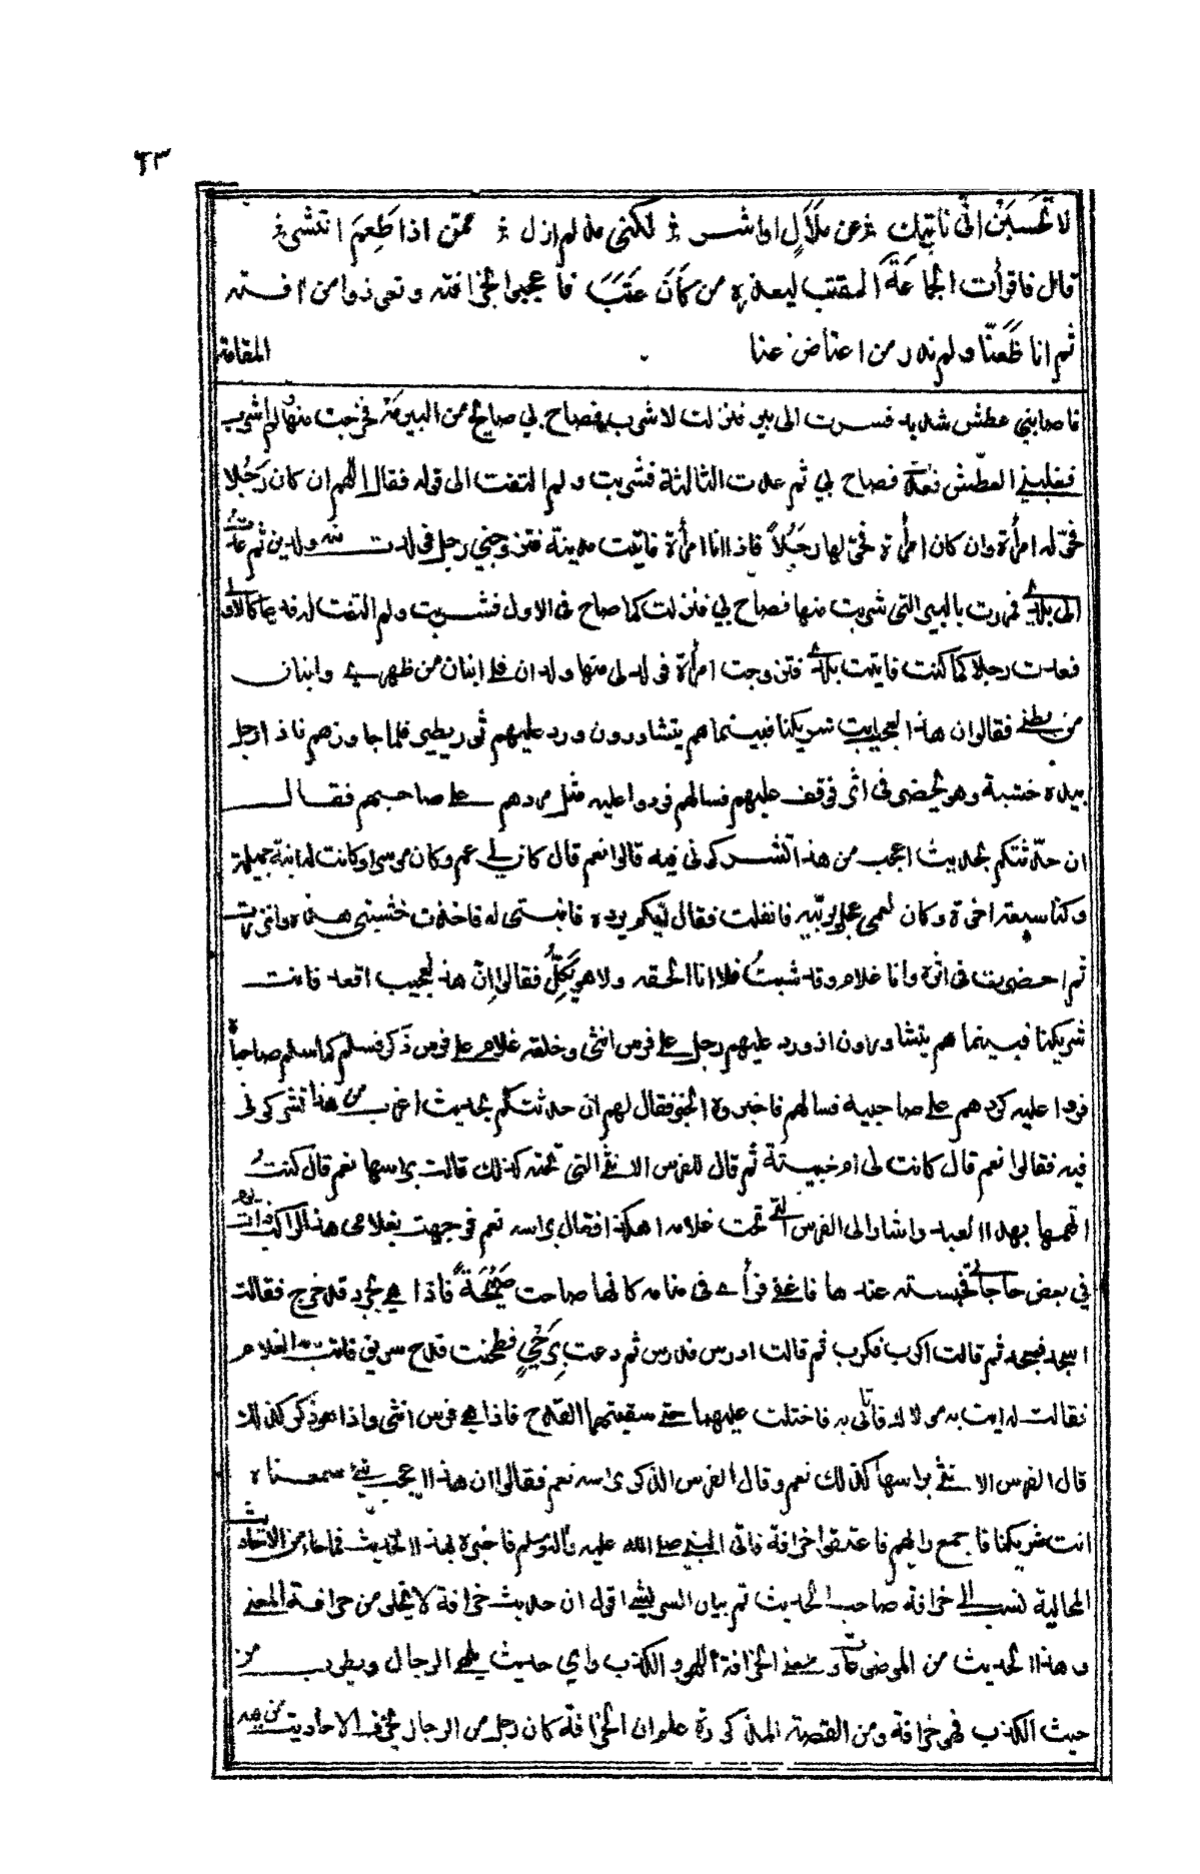 ٦٣
لا تَحْسَبَنْ انّى نأيتك عن مَلَالٍ او اشر لكننى مذ لم ازل ممّن اذا طَعِمَ انتشر
قال فاقرأت الجماعَةَ القتب ليعذره من كَانَ عَتَبَ فاعجبوا لخرافته وتعوذوا من افته
ثم انا ظَعَنّا ولم ندر من اعتاض عنا المقامة
فاصابني عطش شديد فسرت الى بير فنزلت لاشرب فصاح بي صايح من البير مَه فخرجت منها ولم اشرب
فغلبني العطش فعدت فصاح بي ثم عدت الثالثة فشربت ولم التفت الى قوله فقال اللهم ان كان رَجُلا
فحوّله امرأة وان كان امرأة فحوّلها رجُلاً فاذا انا امرأة فاتيت مدينة فتزوجني رجل فولدت منه ولدين ثم عدت
الى بلدي فمررت بالبير التى شربت منها فصاح بي فنزلت كما صاح فى الاول فشربت ولم التفت له فدعا كالاول
فعدت رجلا كما كنت فاتيت بلدي فتزوجت امرأة فولد لى منها ولدان فلي ابنان من ظهري وابنان
من بطني فقالوا ان هذا لعجب انت شريكنا فبينما هم يتشاورون ورد عليهم ثور يطير فلما جاوزهم فاذا رجل
بيده خشبة وهو يحضر فى اثره فوقف عليهم فسالهم فردوا عليه مثل مردهم على صاحبهم فقال
ان حدثتكم بحديث اعجب من هذا اتشركوني فيه قالوا نعم قال كان لي عم وكان موسرا وكانت له ابنة جميلة
وكنا سبعة اخوة وكان لعمي عجل يربّيه فانفلت فقال ايكم يرده فابنتى له فاخذت خشبتى هذه واتزرت
ثم احضرت فى اثره وانا غلام وقد شبتُ فلا انا الحقه ولا هو يَكِلُّ فقالوا انّ هذا لعجيب اقعد فانت
شريكنا فبينما هم يتشاورون اذ ورد عليهم رجل على فرس انثى وخلفه غلام على فرس ذكر فسلم كما سلم صاحباه
فردوا عليه كردهم على صاحبيه فسالهم فاخبروه الخبر فقال لهم ان حدثتكم بحديث اغرب من هذا تشركونى
فيه فقالوا نعم قال كانت لى ام خبيثة ثم قال للفرس الانثى التى تحته كذلك قالت براسها نعم قال كنت
اتهمها بهذا العبد واشار الى الفرس التي تحت غلامه اهكذا فقال براسه نعم فوجهت بغلامى هذا الراكب ذات يوم
في بعض حاجاتي فحبسته عندها فاغفى فرأى فى منامه كانها صاحت صَيْحَةً فاذا هي بجرذ قد خرج فقالت
اسجد فسجد ثم قالت اكرب فكرب ثم قالت ادرس فدرس ثم دعت برَحًى فطحنت قدح سويق فاتت به الغلام
فقالت له ايت به مولاك فاتى به فاختلت عليهما حتى سقيتهما القدح فاذا هي فرس انثى واذا هو ذكر كذلك
قال الفرس الانثى براسها كذلك نعم وقال الفرس الذكر براسه نعم فقالوا ان هذا اعجب شئ سمعناه
انت شريكنا فاجمع رايهم فاعتقوا خرافة فاتى النبي صلى الله عليه وآله وسلم فاخبره بهذا الحديث فما جاء من الاحاديث
المحالية نسب الى خرافة صاحب الحديث ثم بيان السر اقول ان حديث خرافة لا يخلى من خرافة المعنى
وهذا الحديث من الموضوعات ومعنى الخرافة اللهو والكذب واي حديث يلهي الرجال ويطرب من
حيث الكذب فهو خرافة ومن القصة المذكورة علم ان الخرافة كان رجل من الرجال الاحاديث من بعد